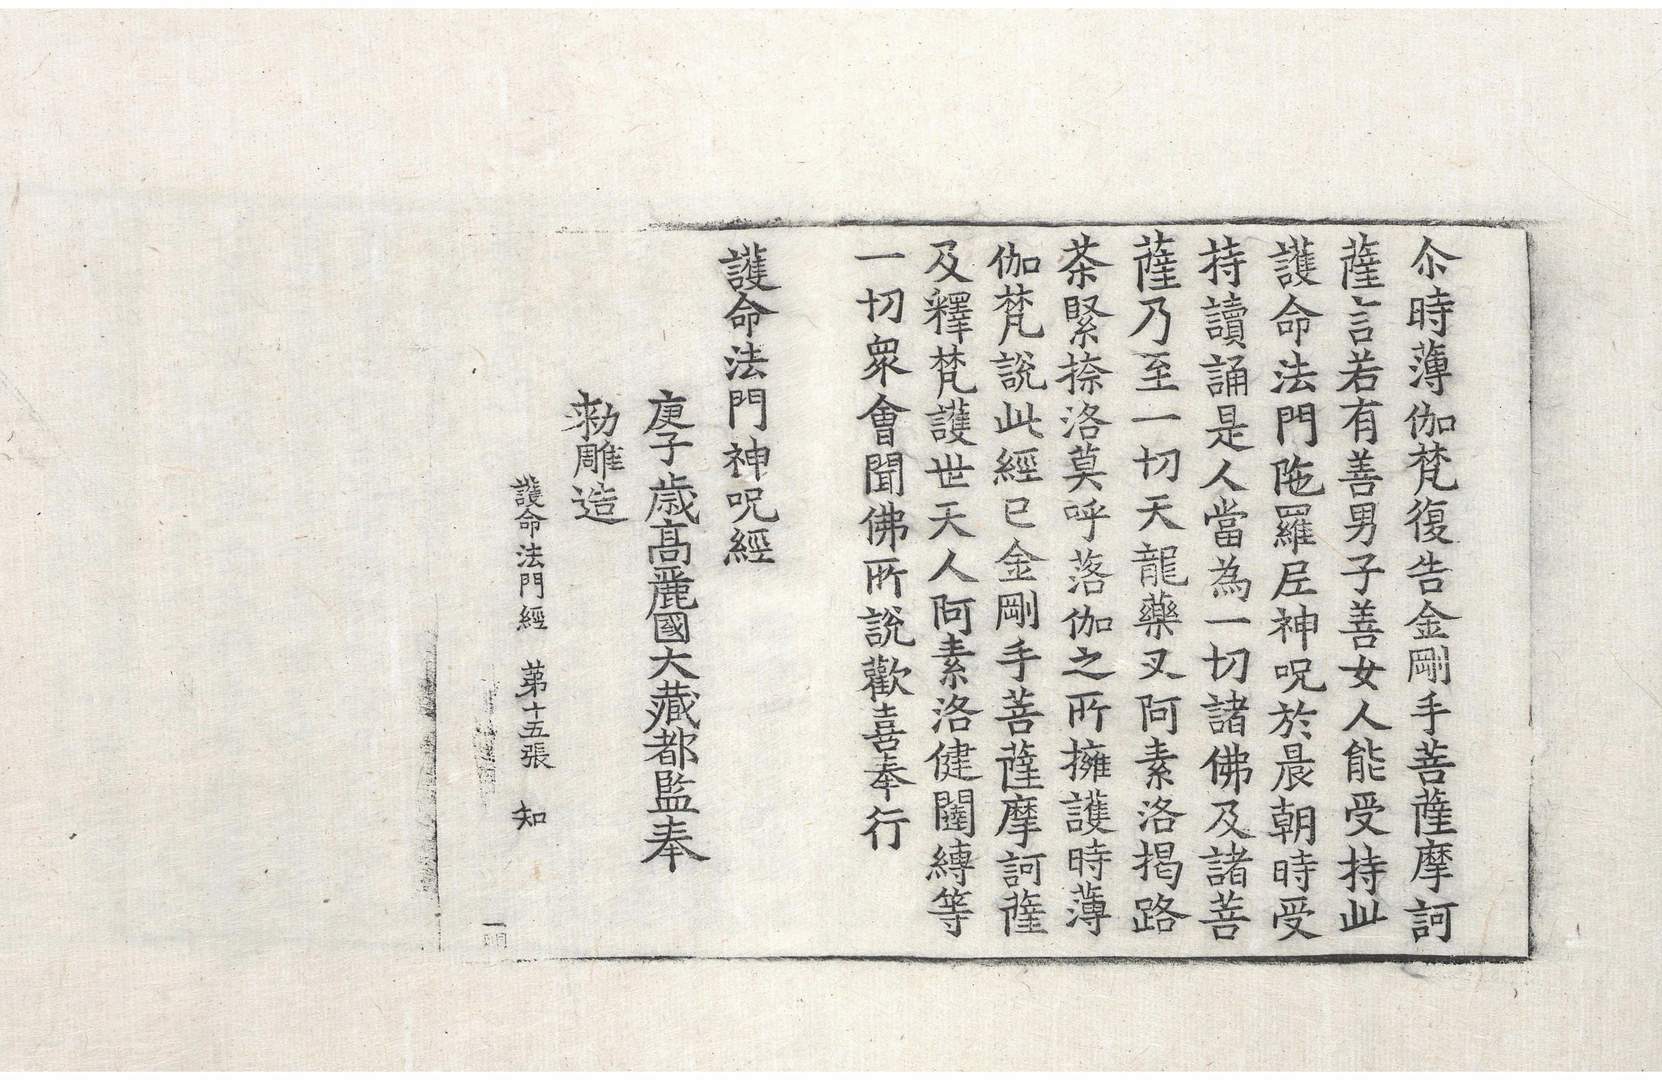 尒時薄伽梵復告金剛手菩薩摩訶
薩言若有善男子善女人能受持此
護命法門陁羅尼神呪於晨朝時受
持讀誦是人當為一切諸佛及諸菩
薩乃至一切天龍藥叉阿素洛揭路
茶緊捺洛莫呼落伽之所擁護時薄
伽梵說此經已金剛手菩薩摩訶薩
及釋梵護世天人阿素洛健闥縛等
一切衆會聞佛所說歡喜奉行
護命法門神呪經
庚子歲高麗國大藏都監奉
勅雕造
護命法門經 第十五張 知